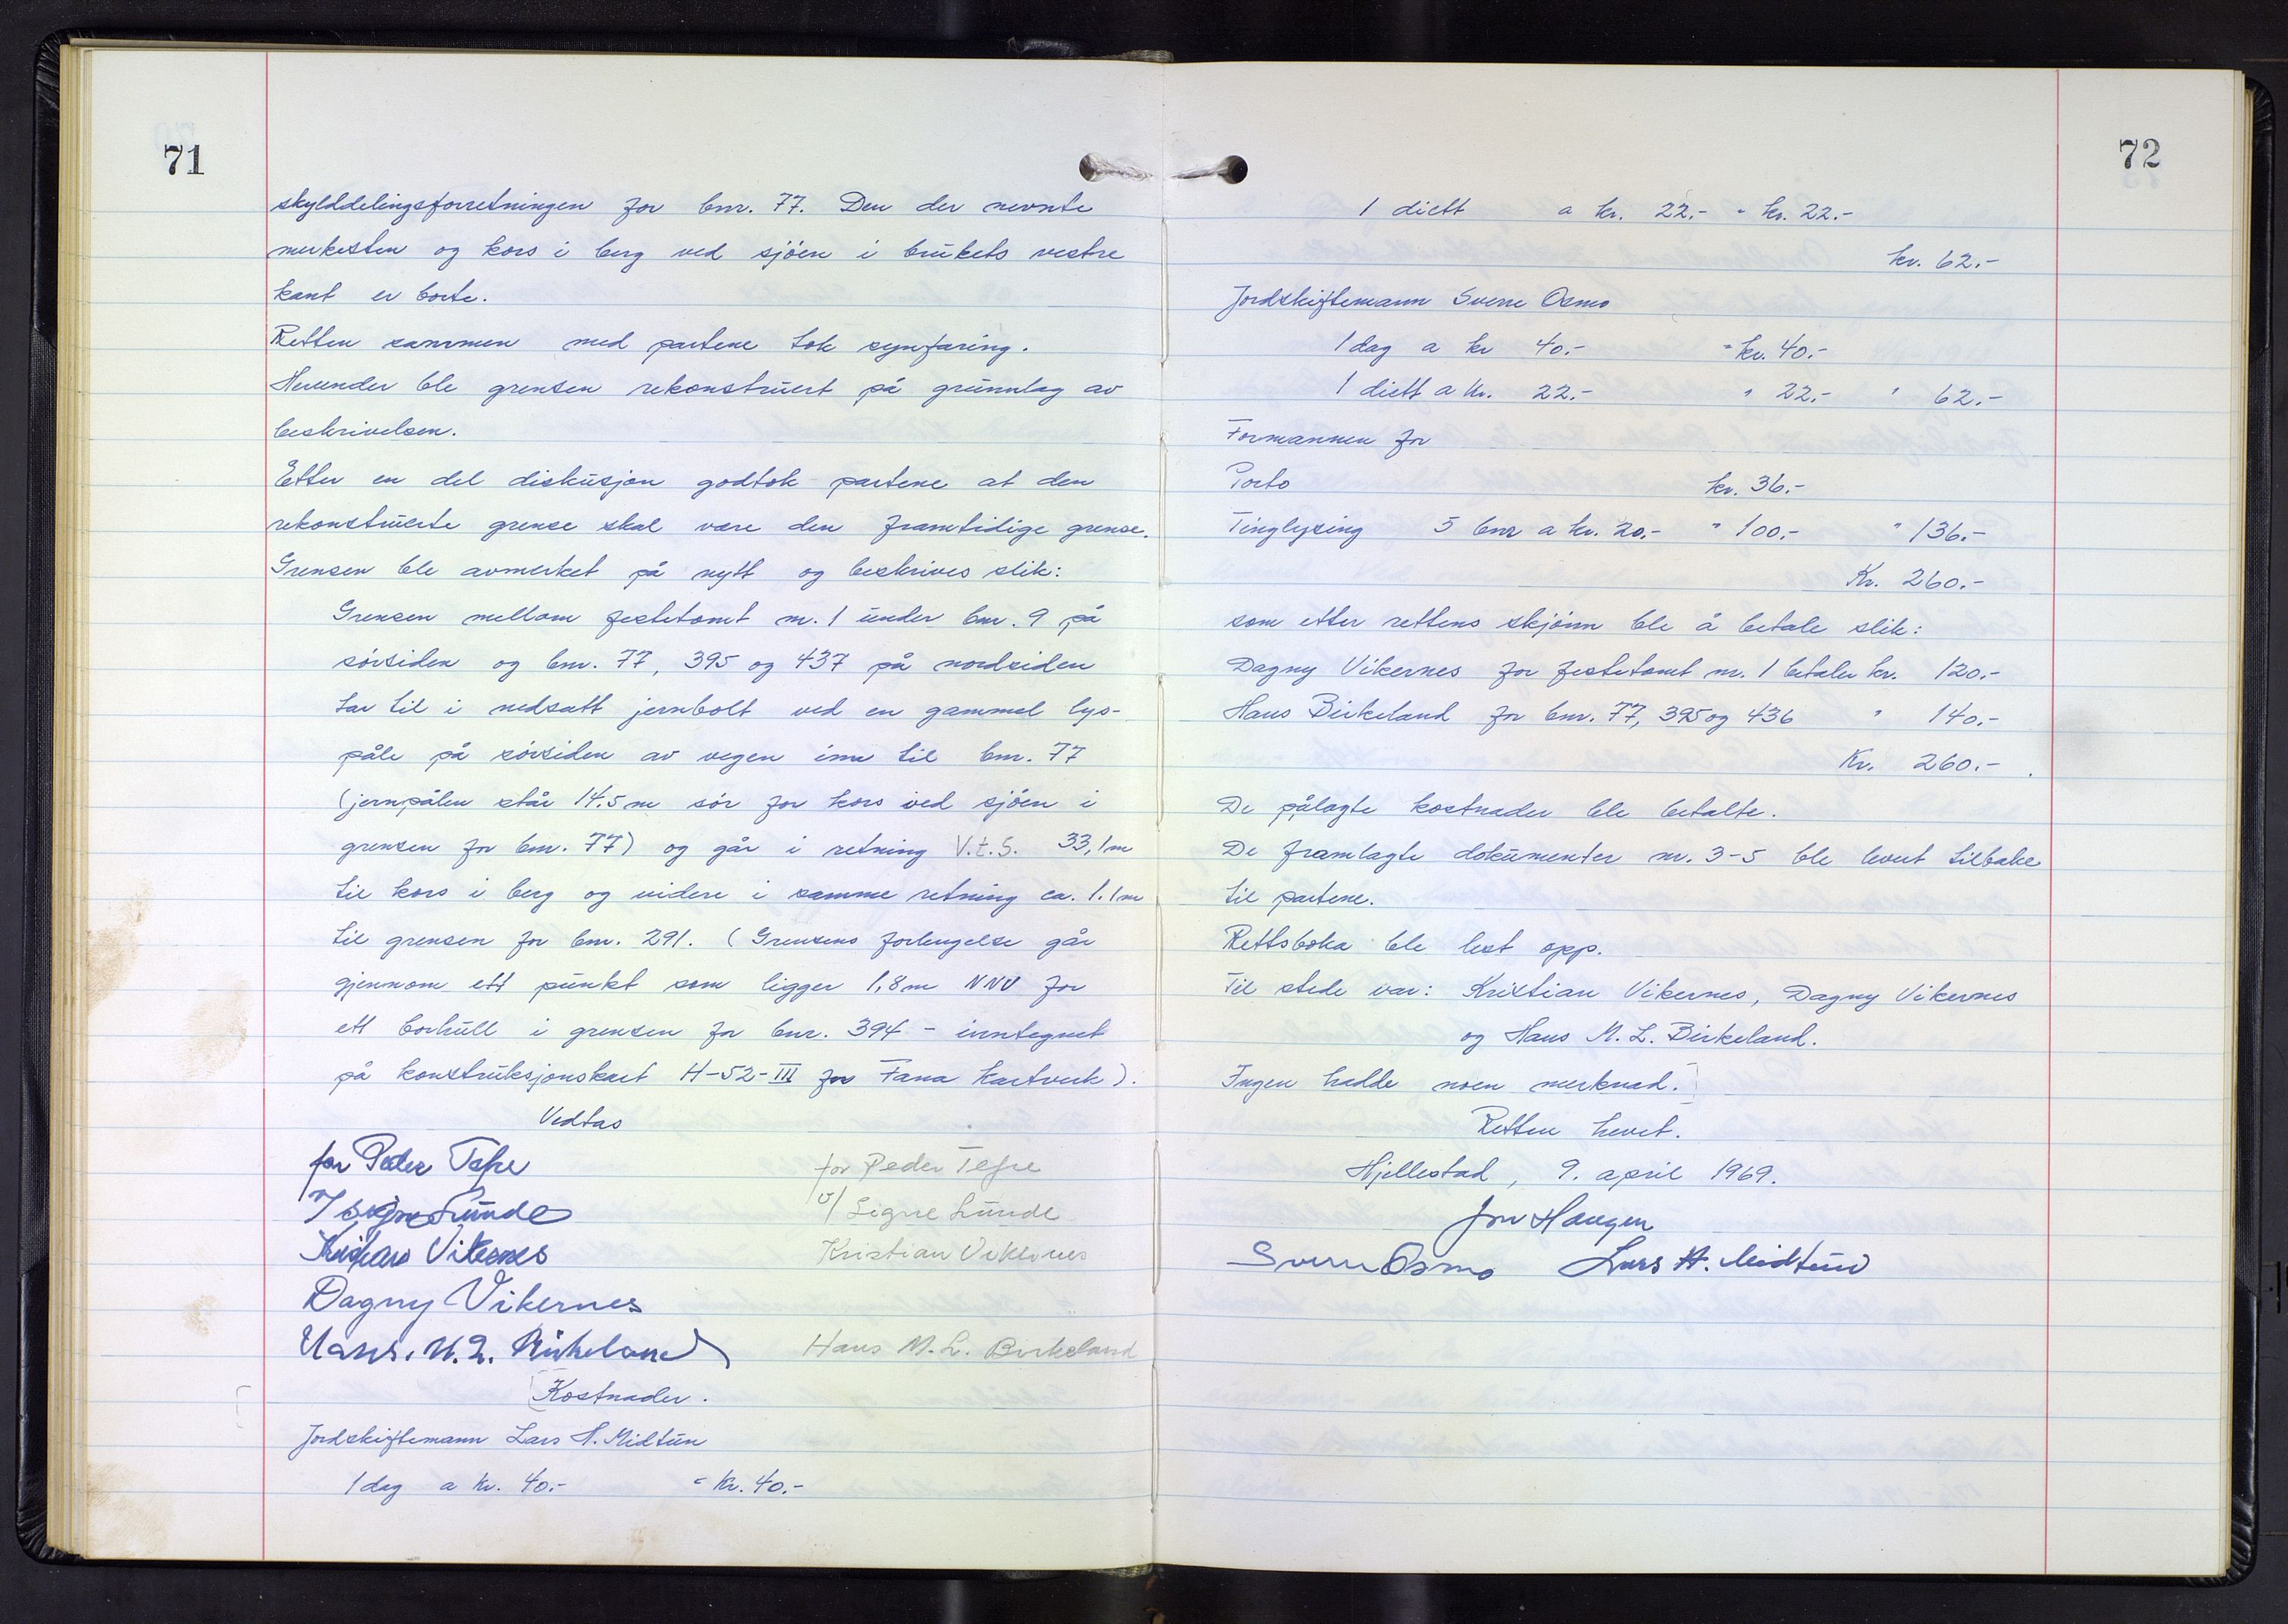 71
skylddelingsforretningen for bnr. 77. Den der nevnte
merkesten og kors i berg ved sjøen i brukets vestre
kant er borte.
Retten sammen med partene tok synfaring.
Herunder ble grensen rekonstruert på grunnlag av
beskrivelsen.
Etter en del diskusjon godtok partene at den
rekonstruerte grense skal være den framtidige grense.
Grensen ble avmerket på nytt og beskrives slik:
Grensen mellom festetomt nr. 1 under bnr. 9 på
sørsiden og bnr. 77, 395 og 437 på nordsiden
tar til i nedsatt jernbolt ved en gammel lys-
påle på sørsiden av vegen inn til bnr. 77
(jernpålen står 14.5 m sør for kors ved sjøen i
grensen for bnr. 77) og går i retning V.t.S. 33,1 m
til kors i berg og videre i samme retning ca. 1.1 m
til grensen for bnr. 291. (Grensens forlengelse går
gjennom ett punkt som ligger 1,8 m NNV for
ett borhull i grensen for bnr. 394 - inntegnet
på konstruksjonskart H-52-III for Fana Kartverk).
Vedtas
for Peder Tefre for Peder Tefre
v/ Signe Lunde v/ Signe Lunde
Kristian Vikernes Kristian Vikernes
Dagny Vikernes
Hans. M. L. Birkeland Hans M. L. Birkeland
Kostnader.
Jordskiftemann Lars H. Midtun
1 dag a kr. 40.- = kr. 40.-
72
1 diett a kr. 22.- " kr. 22.-
kr. 62.-
Jordskiftemann Sverre Osmo
1 dag a kr 40.- = kr. 40.-
1 diett a kr. 22.- " 22.- " 62.-
Formannen for
Porto kr. 36.-
Tinglysing 5 bnr a kr. 20.- " 100.- " 136.-
Kr. 260.-
som etter rettens skjønn ble å betale slik:
Dagny Vikernes for festetomt nr. 1 betaler kr. 120.-
Hans Birkeland for bnr. 77, 395 og 436 " 140.-
Kr. 260.-
De pålagte kostnader ble betalte.
De framlagte dokumenter nr. 3-5 ble levert tilbake
til partene.
Rettsboka ble lest opp.
Til stede var: Kristian Vikernes, Dagny Vikernes
og Hans M. L. Birkeland.
Ingen hadde noen merknad.
Retten hevet.
Hjellestad, 9. april 1969.
Jon Haugen
Sverre Osmo Lars H. Midtun